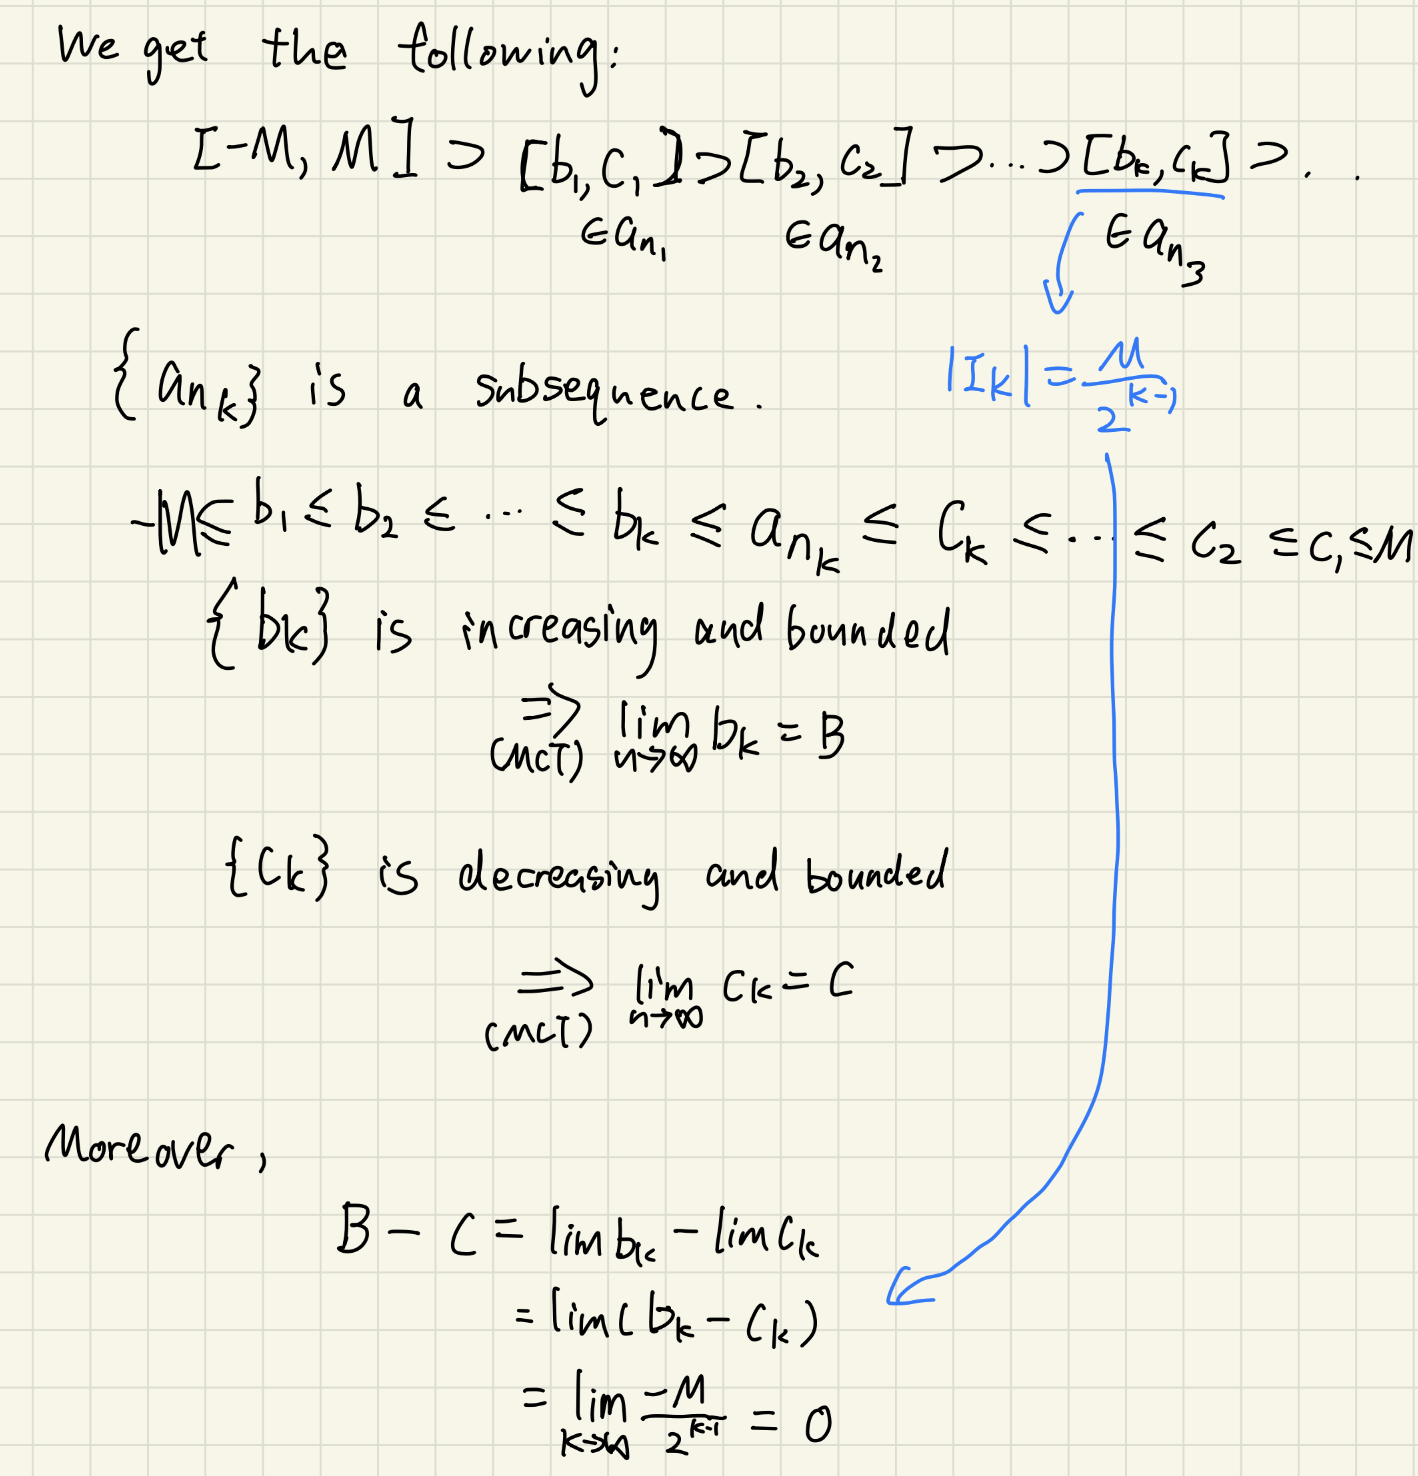 We get the following:
[-M, M] ⊃ [b₁, C₁] ⊃ [b₂, c₂] ⊃ ... ⊃ [bₖ, cₖ] ⊃ . .
∈ aₙ₁ ∈ aₙ₂ ∈ aₙ₃
|Iₖ| = M / 2^(k-1)
{aₙₖ} is a subsequence.
-M ≤ b₁ ≤ b₂ ≤ ... ≤ bₖ ≤ aₙₖ ≤ Cₖ ≤ ... ≤ c₂ ≤ c₁ ≤ M
{bk} is increasing and bounded
⇒ (MCT) lim n→∞ bk = B
{Ck} is decreasing and bounded
⇒ (MCT) lim n→∞ Ck = C
Moreover,
B - C = lim bk - lim Ck
= lim( bk - Ck)
= lim k→∞ -M / 2^(k-1) = 0